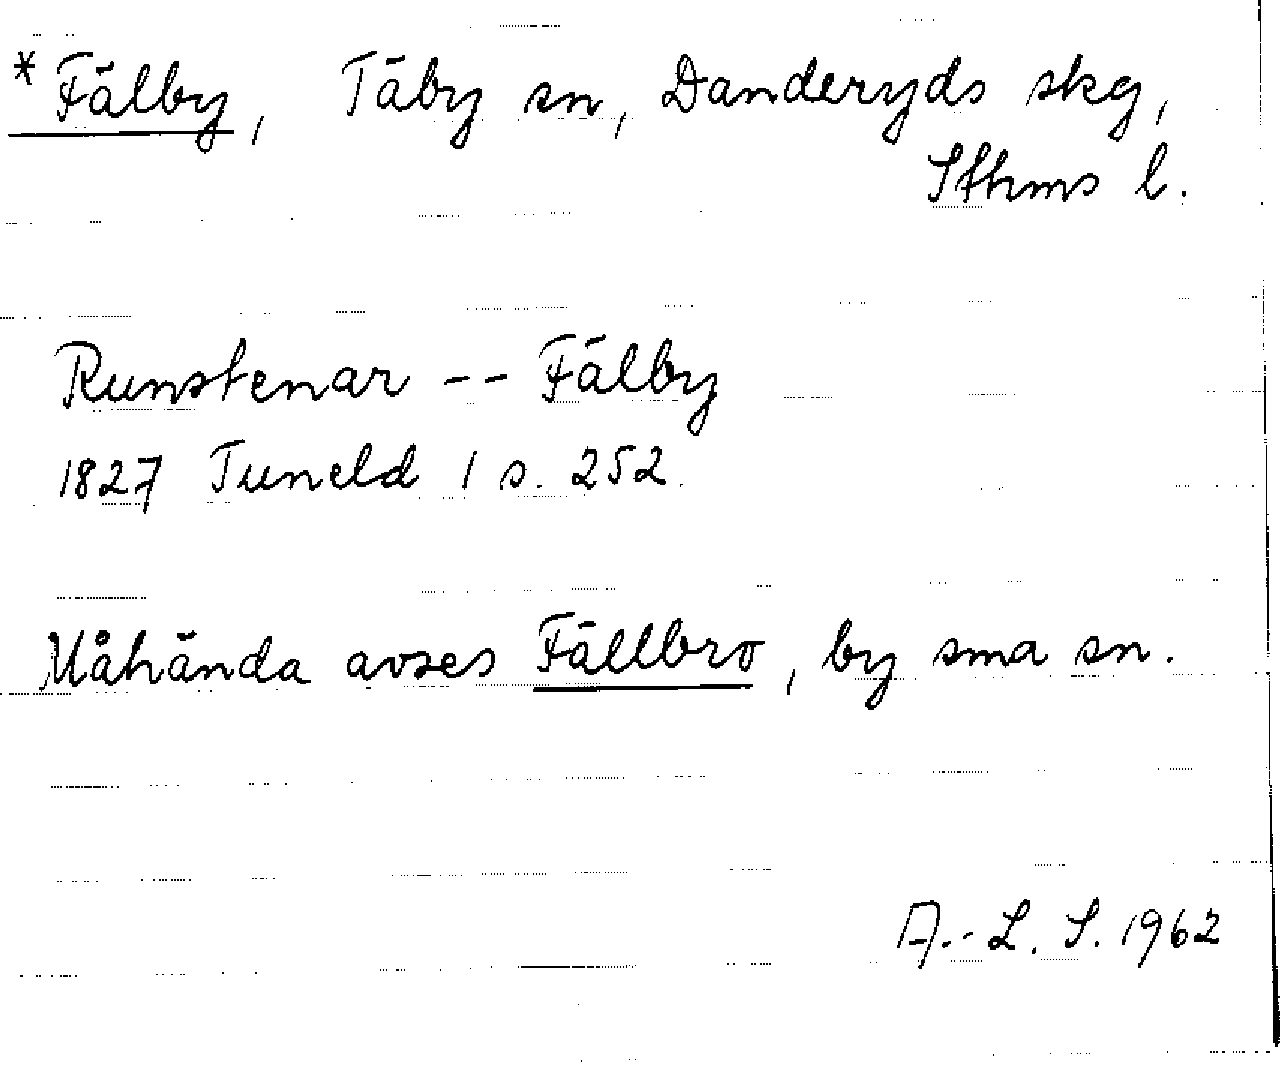 * Fälby, Täby sn, Danderyds skg,
Sthms l.
Runstenar -- Fälby
1827 Tuneld 1 s. 252.
Måhända avses Fällbro, by sma sn.
A.-L. S. 1962